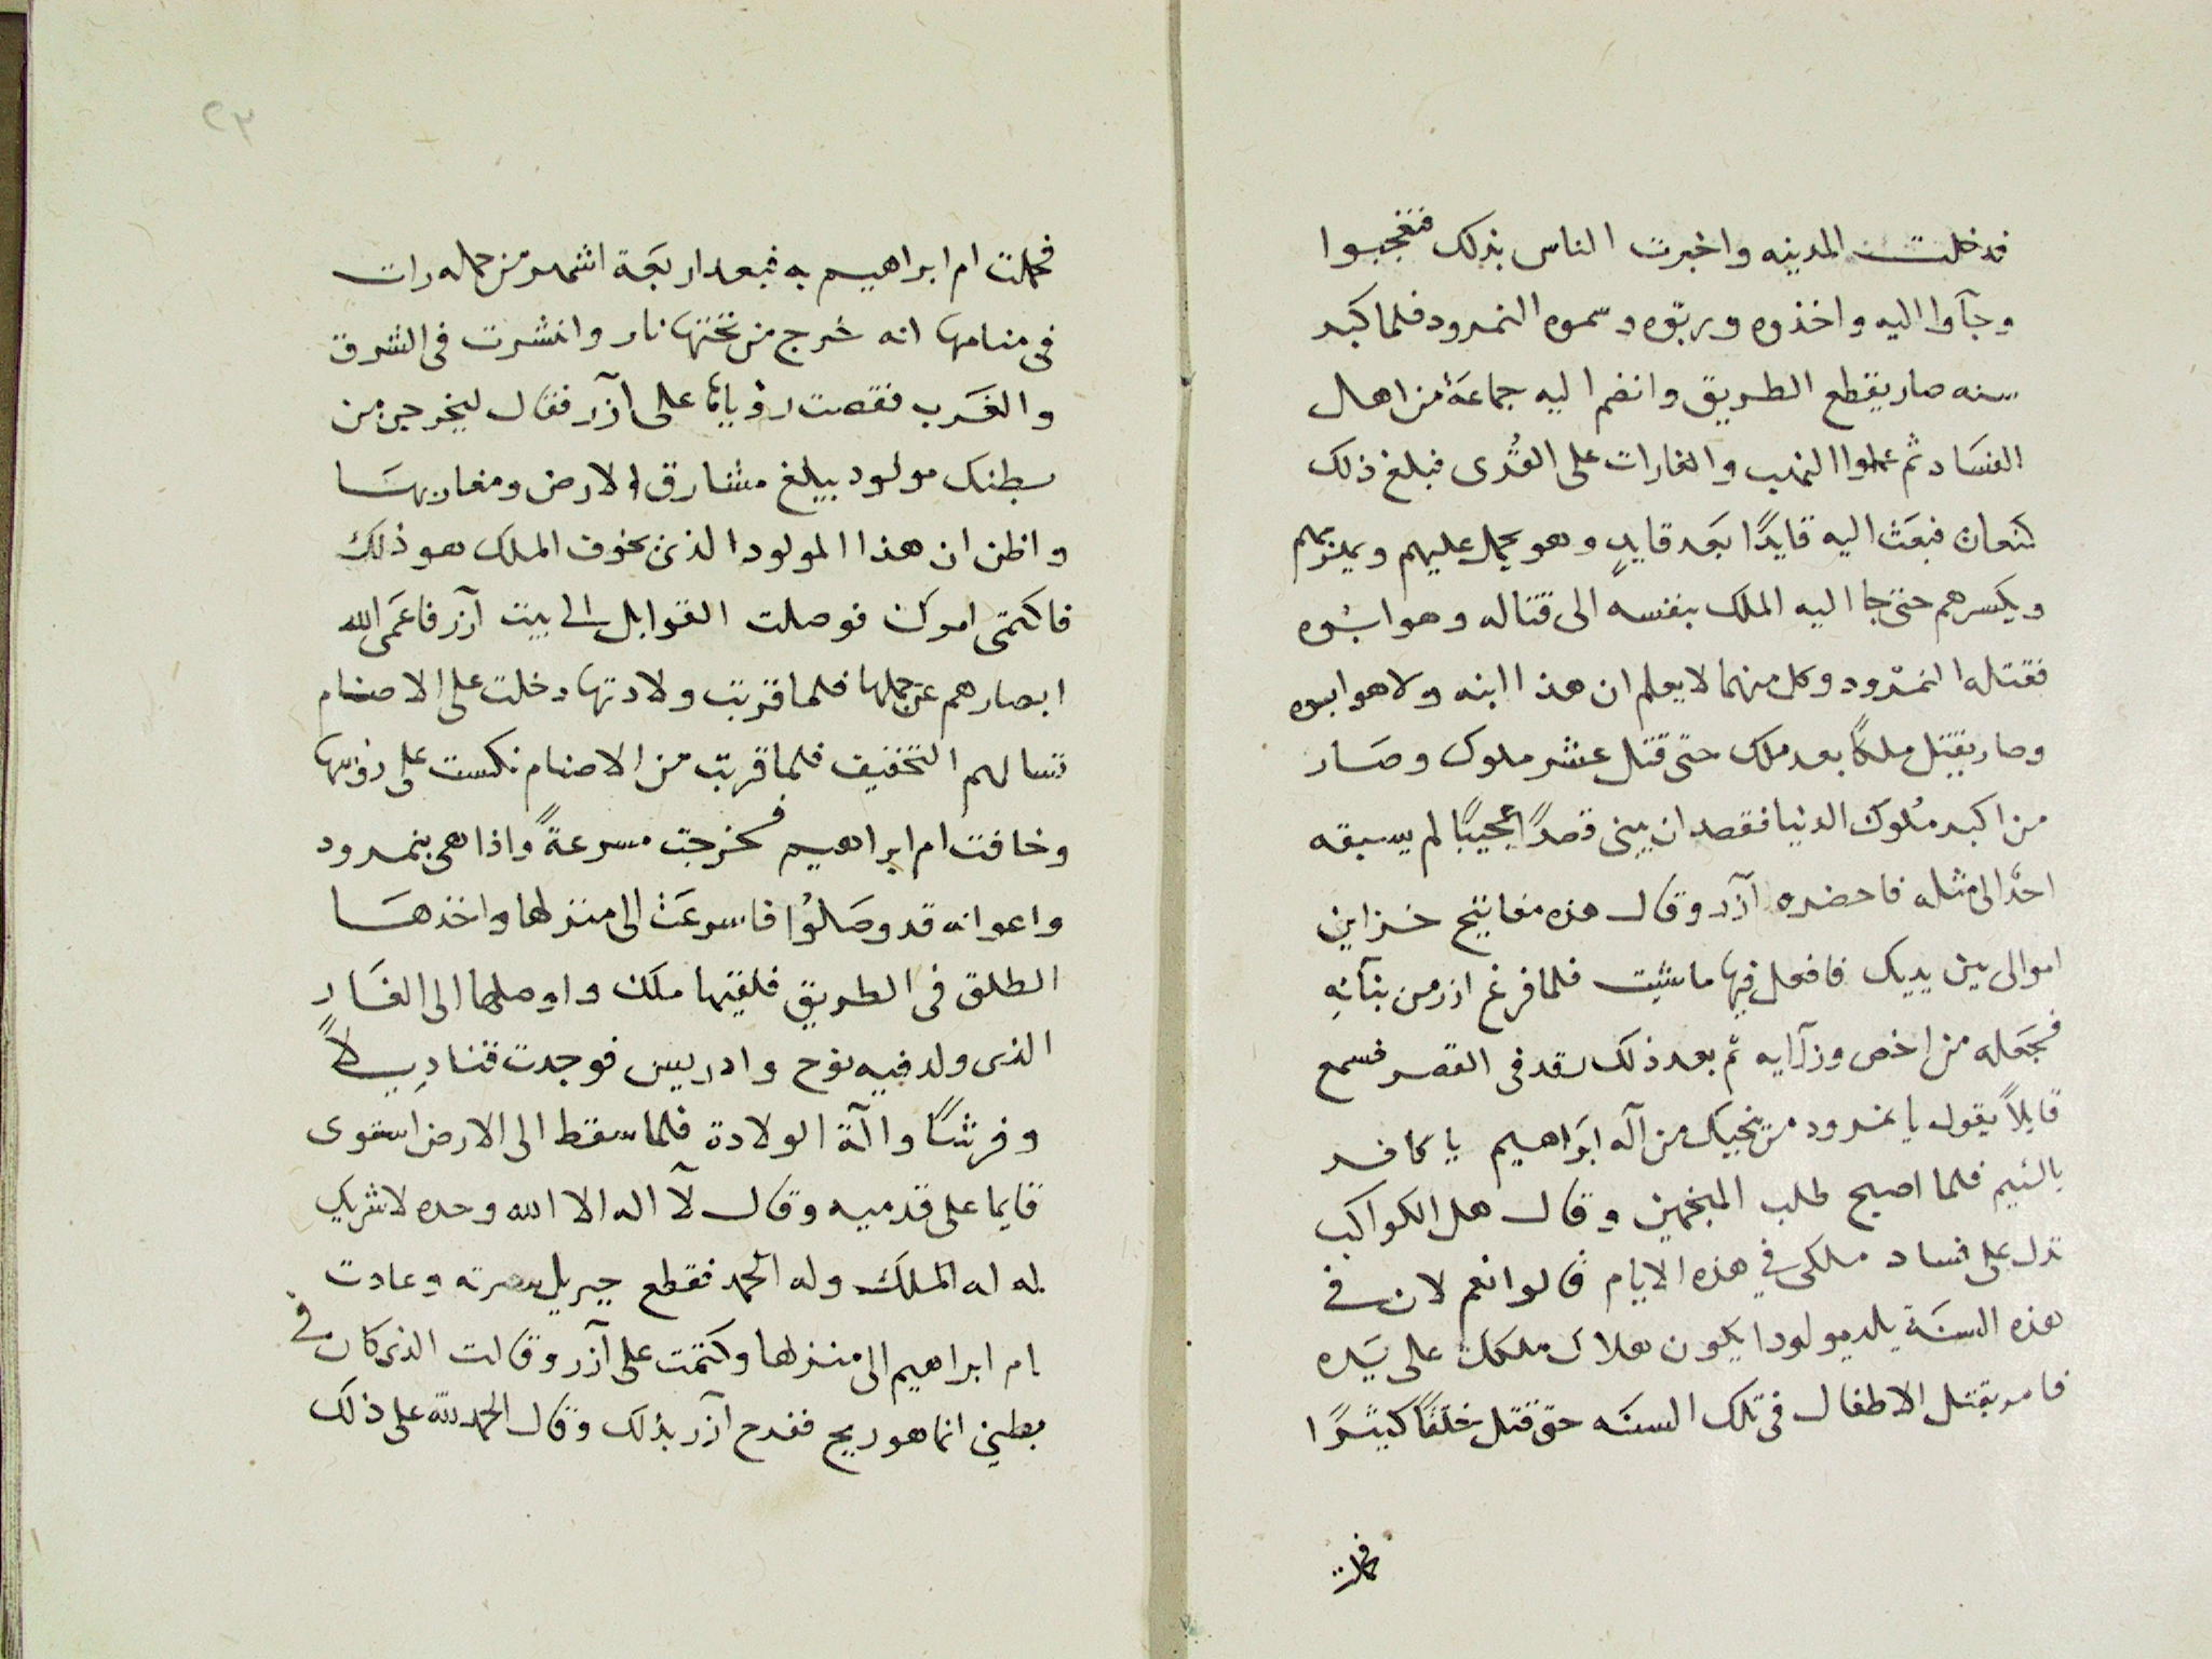 فدخلت المدينه واخبرت الناس بذلك فتعجبوا
وجآوا اليه واخذوه وربّوه وسموه النمرود فلما كبر
سنه صار يقطع الطريق وانضم اليه جماعة من اهل
الفسَاد ثم عملوا النهب والغارات على القُرى فبلغ ذلك
كنعان فبعَث اليه قايدًا بَعد قايدٍ وهو يحمل عليهم ويهزمهم
ويكسرهم حتى جا اليه الملك بنفسه الى قتاله وهو ابوه
فقتله النمرود وكل منهما لا يعلم ان هذا ابنه ولا هو ابوه
وصار يقتل ملكًا بعد ملك حتى قتل عشر ملوك وصَار
من اكبر مُلوك الدنيا فقصد ان يبنى قصرًا عجيبًا لم يسبقه
احدٌ الى مثله فاحضره آزر وقال هذه مفاتيح خزاين
اموالى بين يديك فافعل فيها ما شيت فلما فرغ ازر من بنآيه
فجعله من اخص وزرآيه ثم بعد ذلك رقد فى القصر فسمع
قايلاً يقول يا نمرود من ينجيك من آله ابرَاهيم يا كافر
باليم فلما اصبح طلب المنجمين وقال هل الكواكب
تدل على فساد ملكى في هذه الايام قالوا نعم لان في
هذه السنَة يلد مولودا يكون هلاك ملكك على يَده
فامر بقتل الاطفال فى تلك السنَه حتى قتل خلقًا كثيرًا
فحملت
٢٣
فحملت ام ابراهيم به فبعد اربعَة اشهر من حمله رات
فى منامها انه خرج من تحتها نار وانتشرت فى الشرق
والغَرب فقصت رؤياها على آزر فقال ليخرجن من
بطنك مولود يبلغ مشارق الارض ومغاربهَا
واظن ان هذا المولود الذى يخوف الملك هو ذلك
فاكتمى امرك فوصلت القوابل الى بيت آزر فاعمَى الله
ابصارهم عن حملها فلما قربت ولادتها دخلت على الاصنام
تسالهم التخفيف فلما قربت من الاصنام نكست على رؤسها
وخافت ام ابراهيم فخرجت مسرعةً واذا هى بنمرود
واعوانه قد وصَلوُا فاسرعَت الى منزلها واخذهَا
الطلق فى الطريق فلقيها ملك واوصلها الى الغَار
الذى ولد فيه نوح وادريس فوجدت قناديلاً
وفرشًا وآلة الولادة فلما سقط الى الارض استوى
قايما على قدميه وقال لآ اله الا الله وحده لا شريك
له له الملك وله الحمد فقطع جبريل سرته وعادت
ام ابراهيم الى منزلها وكتمت على آزر وقالت الذى كان في
بطني انما هو ريح ففرح آزر بذلك وقال الحمد لله على ذلك